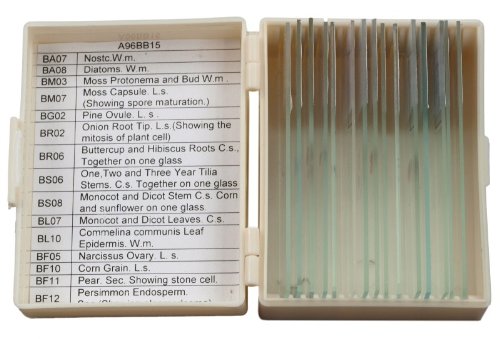 A96BB15
BA07 Nostc.W.m.
BA08 Diatoms. W.m.
BM03 Moss Protonema and Bud W.m .
BM07 Moss Capsule. L.s.
(Showing spore maturation.)
BG02 Pine Ovule. L. s .
BR02 Onion Root Tip. L.s.(Showing the
mitosis of plant cell)
BR06 Buttercup and Hibiscus Roots C.s.,
Together on one glass
BS06 One,Two and Three Year Tilia
Stems. C.s. Together on one glass
BS08 Monocot and Dicot Stem C.s. Corn
and sunflower on one glass.
BL07 Monocot and Dicot Leaves. C.s.
BL10 Commelina communis Leaf
Epidermis. W.m.
BF05 Narcissus Ovary. L. s.
BF10 Corn Grain. L. s.
BF11 Pear. Sec. Showing stone cell.
BF12 Persimmon Endosperm.